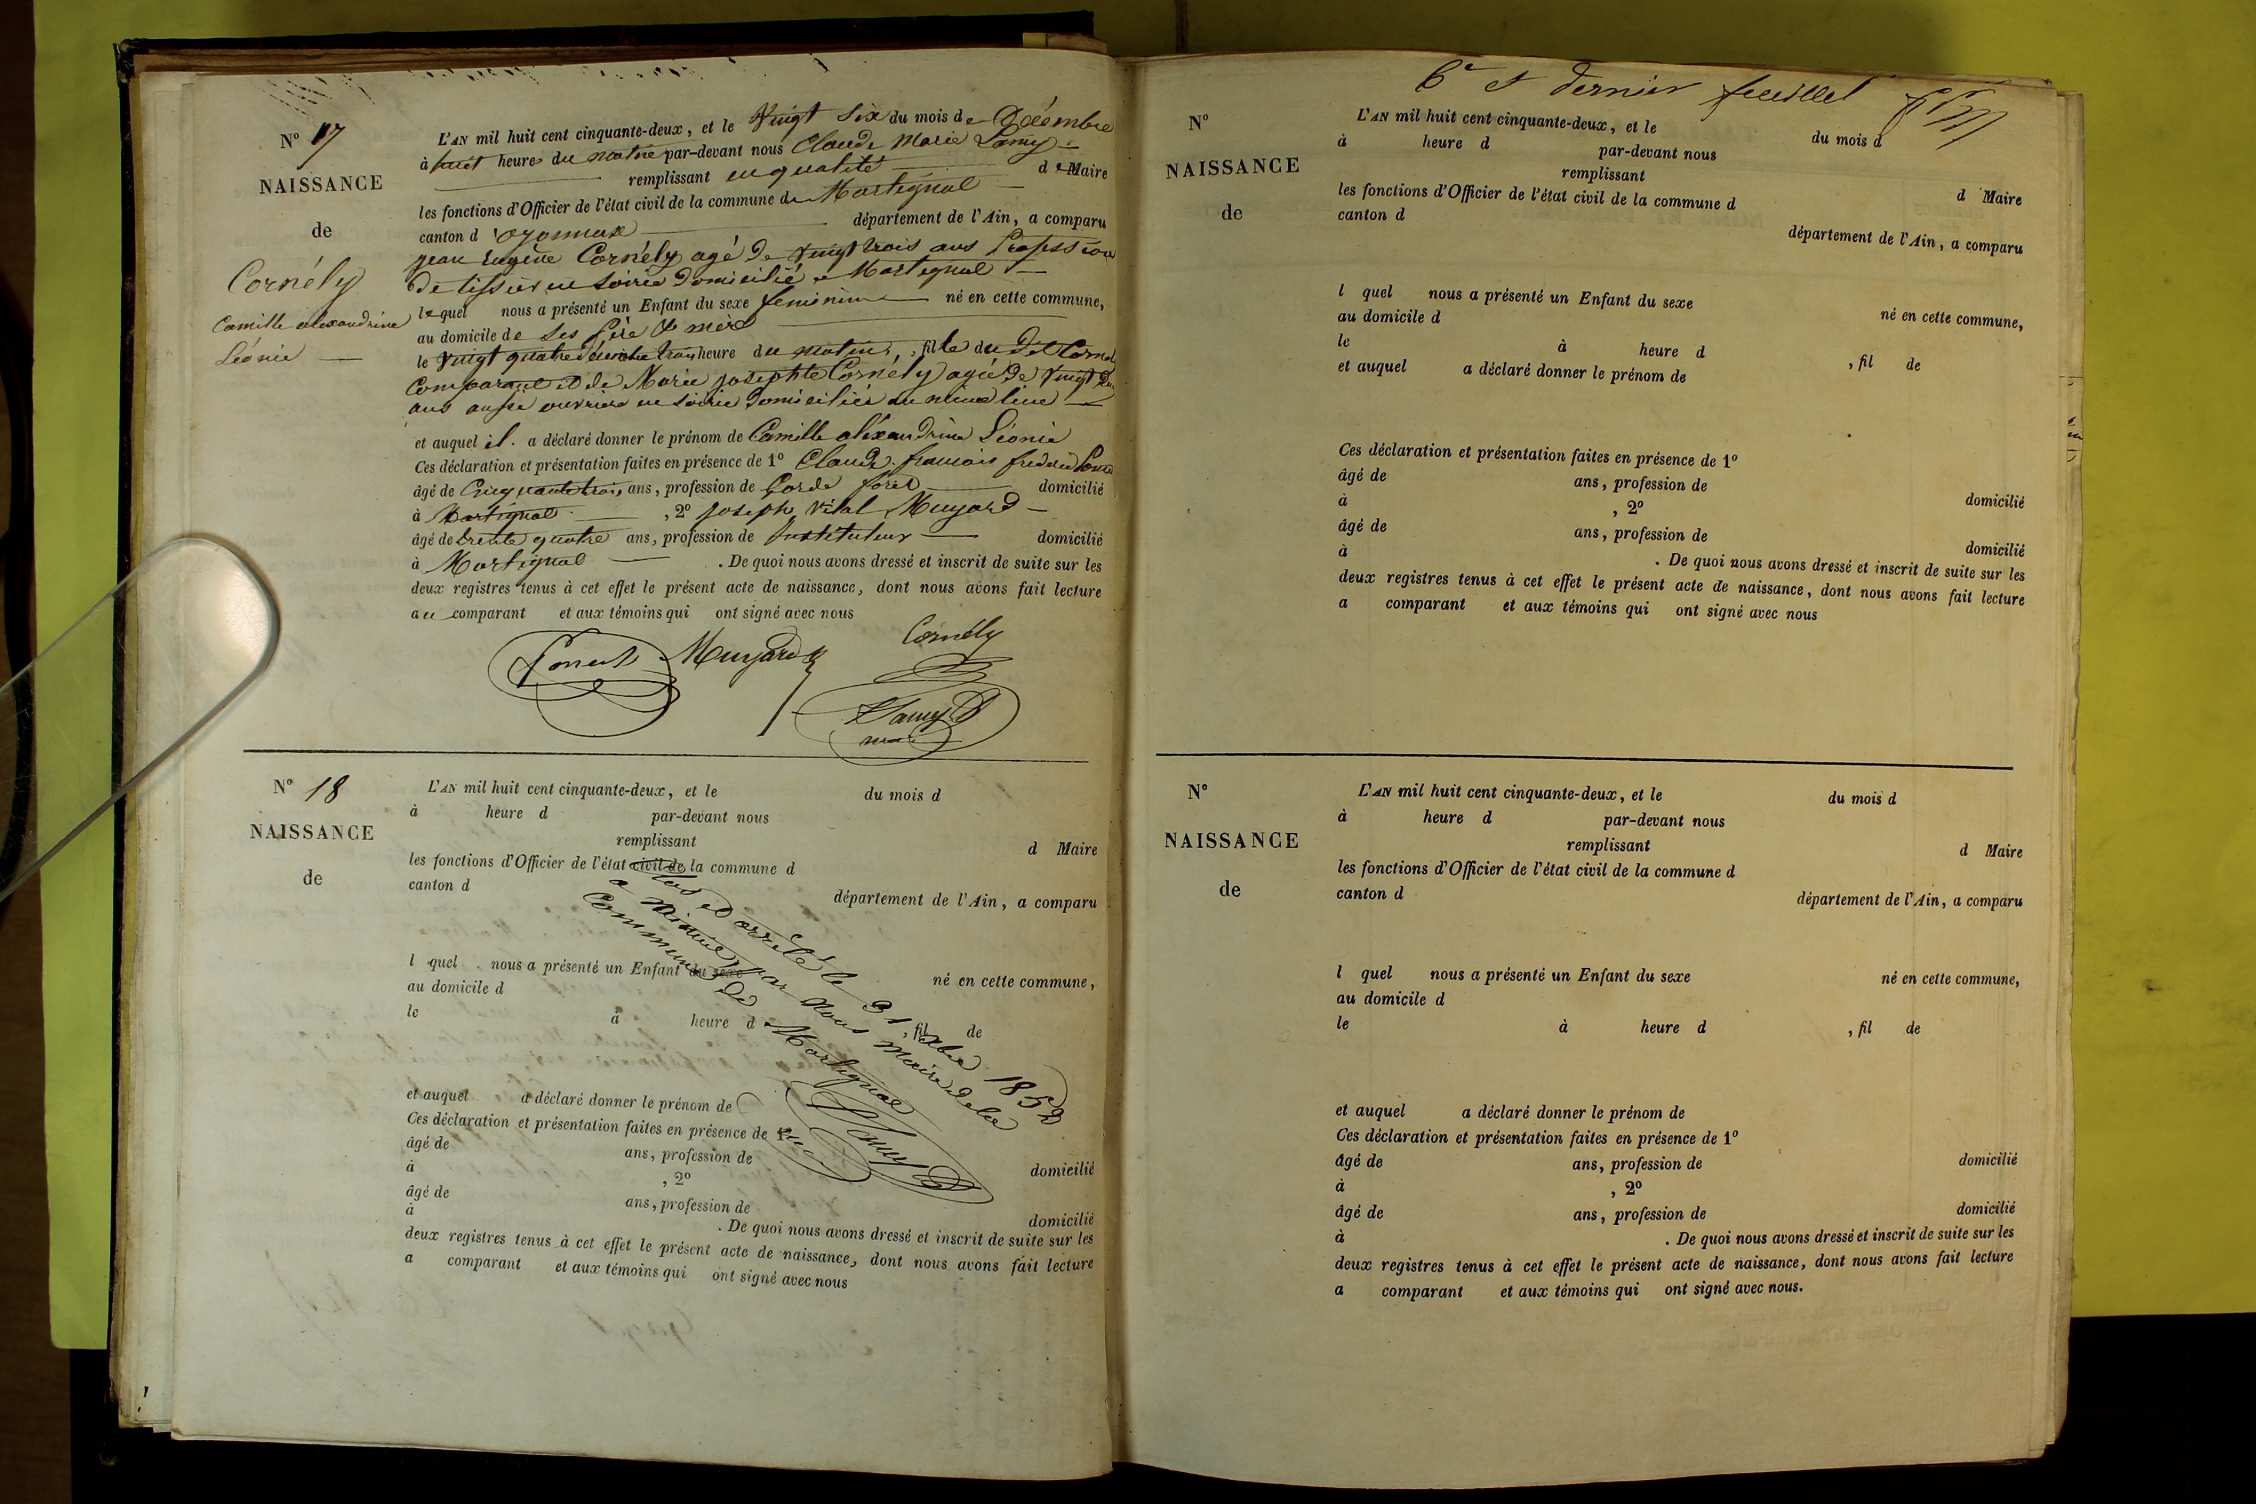 N° 17
NAISSANCE
de
Cornély
Camille alexandrine
Léonie
L'AN mil huit cent cinquante-deux, et le Vingt Six du mois de Décembre
à huit heures du matin par-devant nous Claude Marie Lamy
remplissant en qualité de Maire
les fonctions d'Officier de l'état civil de la commune de Martignat
canton d'oyonnax département de l'Ain, a comparu
jean Eugène Cornély agé de vingt trois ans Profession
de tissier en soirie domicilié a Martignat
lequel nous a présenté un Enfant du sexe feminine né en cette commune,
au domicile de ses père & mère
le Vingt quatre du heure du matin, fille du dit
Comparant et de Marie josephte Cornély agée de vingt
ans aussi ouvriere en soirie domiciliés au meme lieu
et auquel il a déclaré donner le prénom de Camille aléxandrine Léonie
Ces déclaration et présentation faites en présence de 1° Claude françois
âgé de Cinquante trois ans, profession de Garde foret domicilié
à Martignat, 2° joseph Vital Muyard
âgé de trente quatre ans, profession de Instituteur domicilié
à Martignat. De quoi nous avons dressé et inscrit de suite sur les
deux registres tenus à cet effet le présent acte de naissance, dont nous avons fait lecture
au comparant et aux témoins qui ont signé avec nous
Cornély
Muyard
Lamy
N° 18
NAISSANCE
de
L'AN mil huit cent cinquante-deux, et le du mois d
à heure d par-devant nous
remplissant d Maire
les fonctions d'Officier de l'état civil de la commune d
canton d département de l'Ain, a comparu
l quel nous a présenté un Enfant du sexe né en cette commune,
au domicile d
le à heure d , fil de
et auquel a déclaré donner le prénom de
Ces déclaration et présentation faites en présence de 1°
âgé de ans, profession de
à , 2° domicilié
âgé de ans, profession de
à . De quoi nous avons dressé et inscrit de suite sur les domicilié
deux registres tenus à cet effet le présent acte de naissance, dont nous avons fait lecture
a comparant et aux témoins qui ont signé avec nous
Clos et arrêté le 31 xbre 1852
a par nous Maire de la
Commune de Martignat
Lamy
6e et dernier feuillet
N°
NAISSANCE
de
L'AN mil huit cent cinquante-deux, et le du mois d
à heure d par-devant nous
remplissant
les fonctions d'Officier de l'état civil de la commune d d Maire
canton d département de l'Ain, a comparu
l quel nous a présenté un Enfant du sexe
au domicile d né en cette commune,
le à heure d , fil de
et auquel a déclaré donner le prénom de
Ces déclaration et présentation faites en présence de 1°
âgé de ans, profession de
à , 2° domicilié
âgé de ans, profession de
à . De quoi nous avons dressé et inscrit de suite sur les domicilié
deux registres tenus à cet effet le présent acte de naissance, dont nous avons fait lecture
a comparant et aux témoins qui ont signé avec nous
N°
NAISSANCE
de
L'AN mil huit cent cinquante-deux, et le du mois d
à heure d par-devant nous
remplissant d Maire
les fonctions d'Officier de l'état civil de la commune d
canton d département de l'Ain, a comparu
l quel nous a présenté un Enfant du sexe né en cette commune,
au domicile d
le à heure d , fil de
et auquel a déclaré donner le prénom de
Ces déclaration et présentation faites en présence de 1°
âgé de ans, profession de domicilié
à , 2°
âgé de ans, profession de domicilié
à . De quoi nous avons dressé et inscrit de suite sur les
deux registres tenus à cet effet le présent acte de naissance, dont nous avons fait lecture
a comparant et aux témoins qui ont signé avec nous.